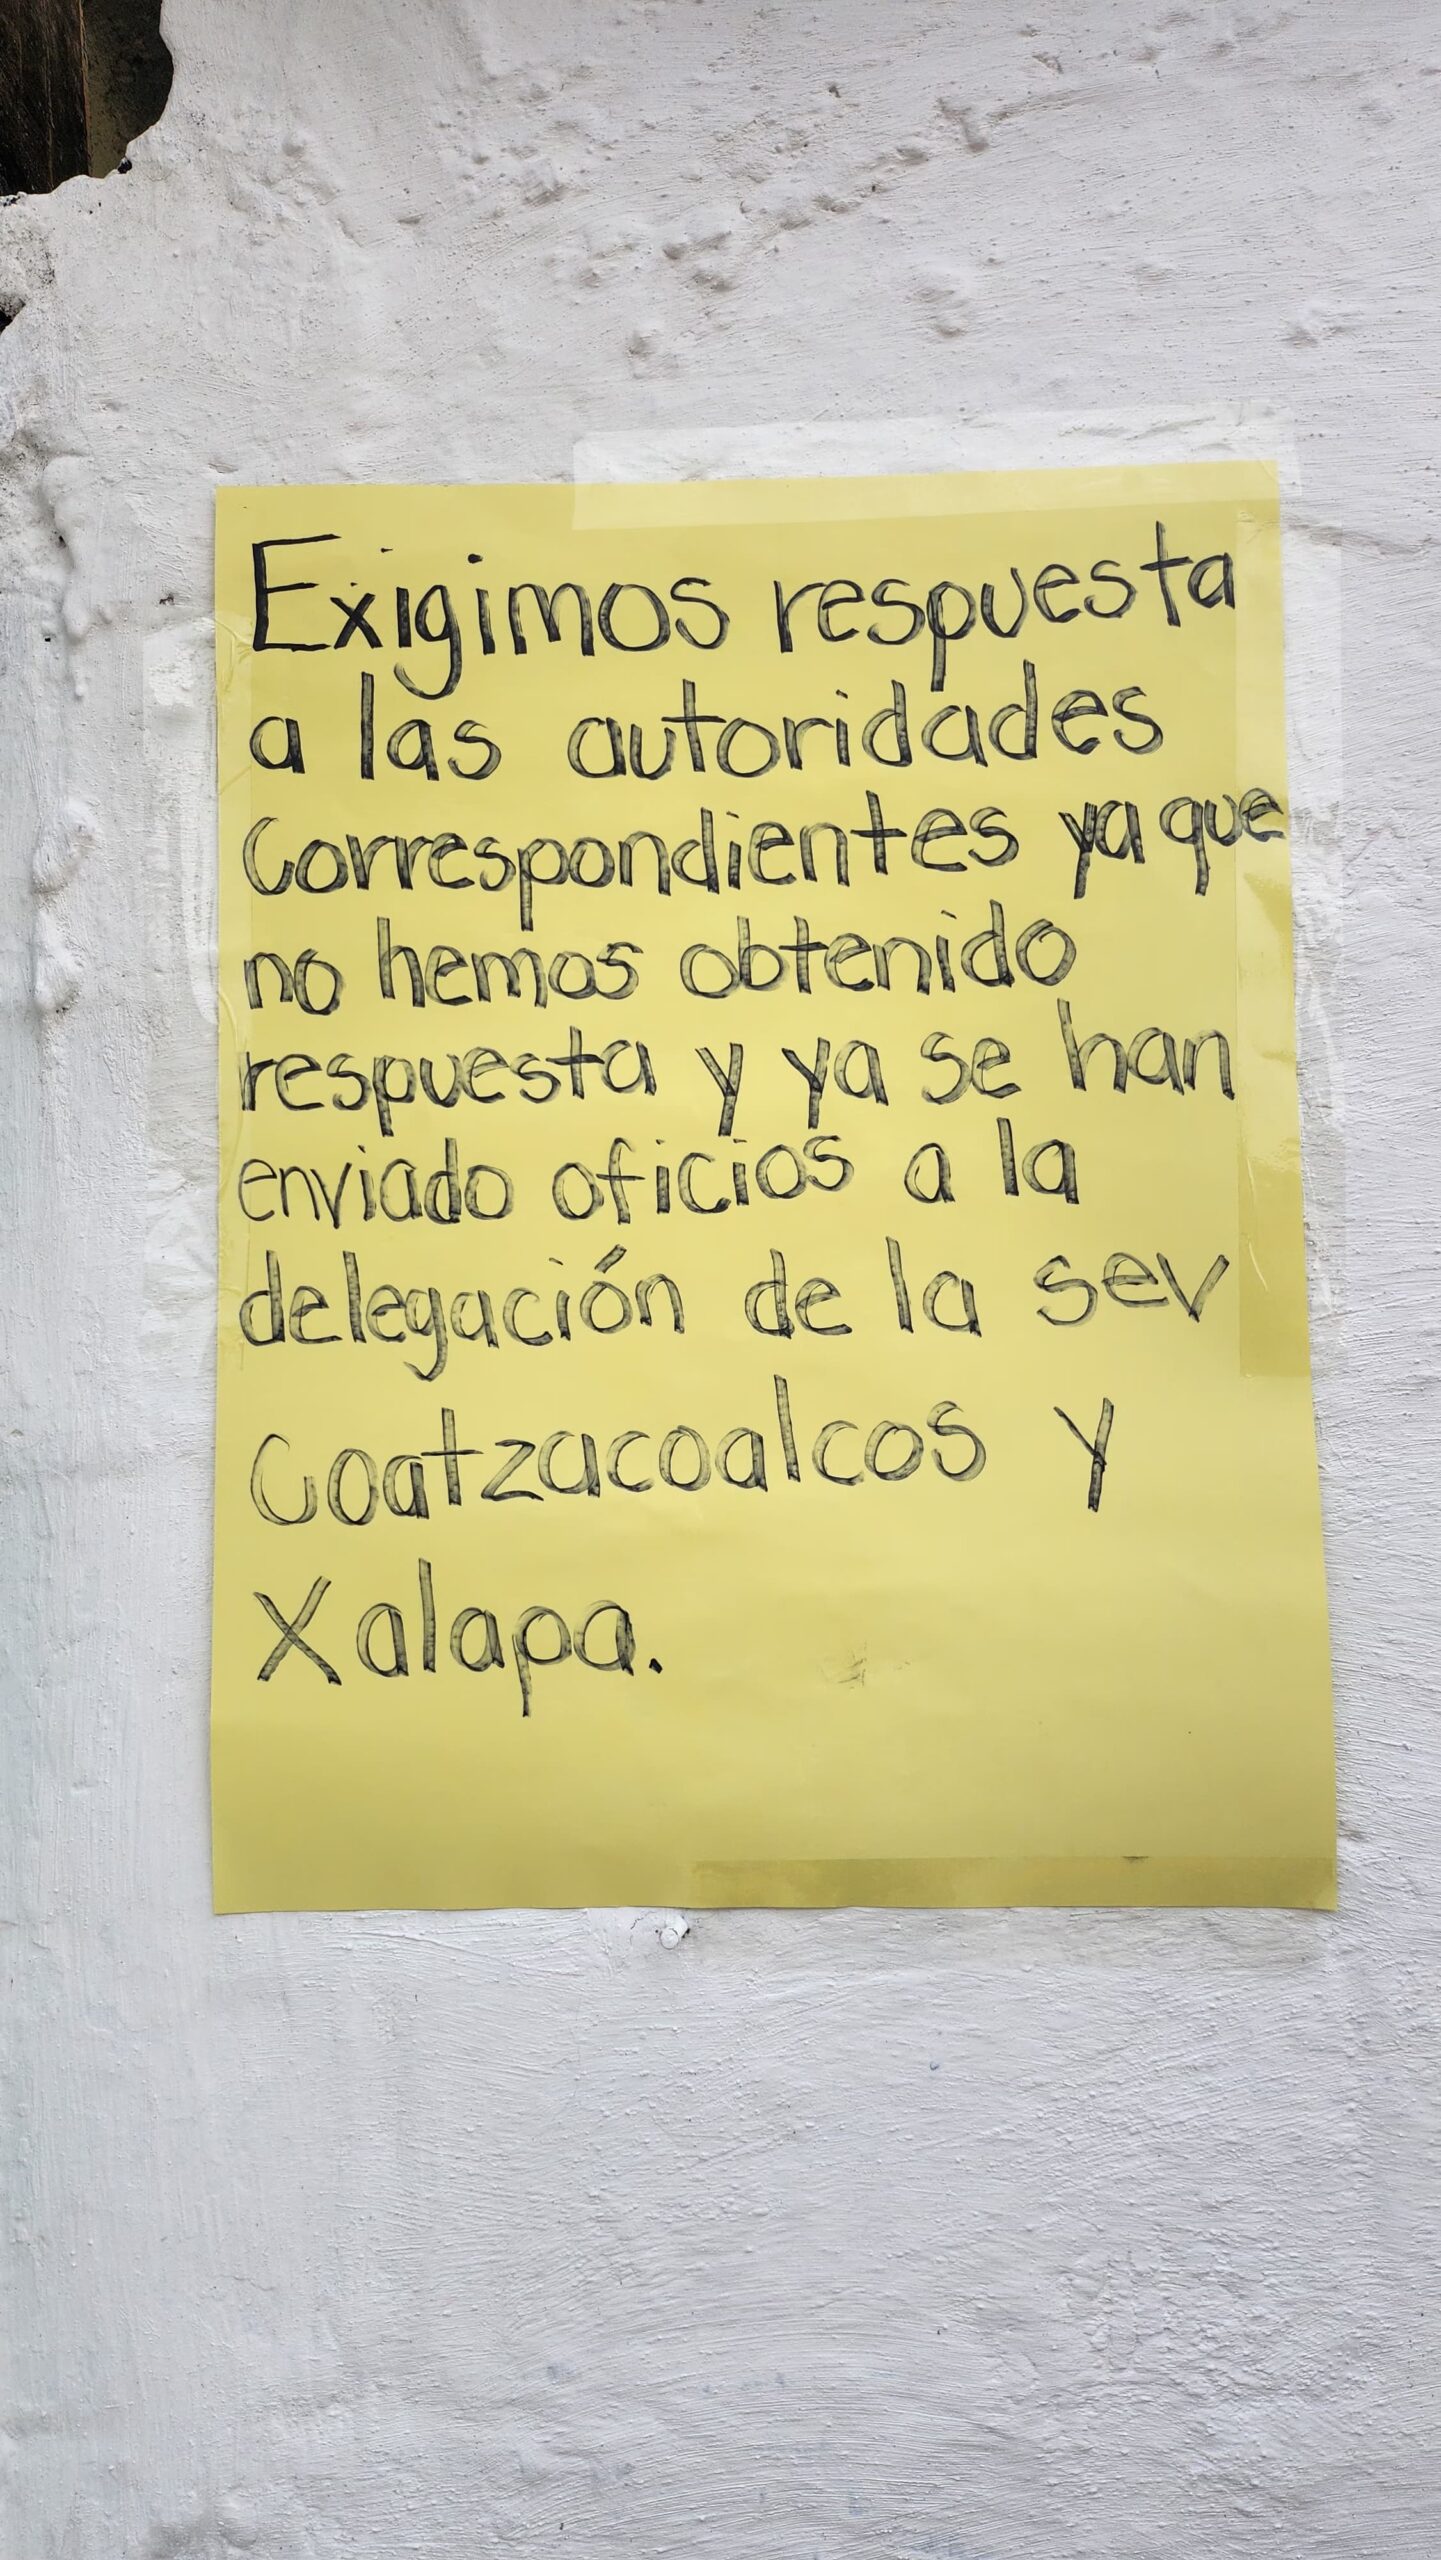 Exigimos respuesta
a las autoridades
Correspondientes ya que
no hemos obtenido
respuesta y ya se han
enviado oficios a la
delegación de la sev
Coatzacoalcos y
Xalapa.